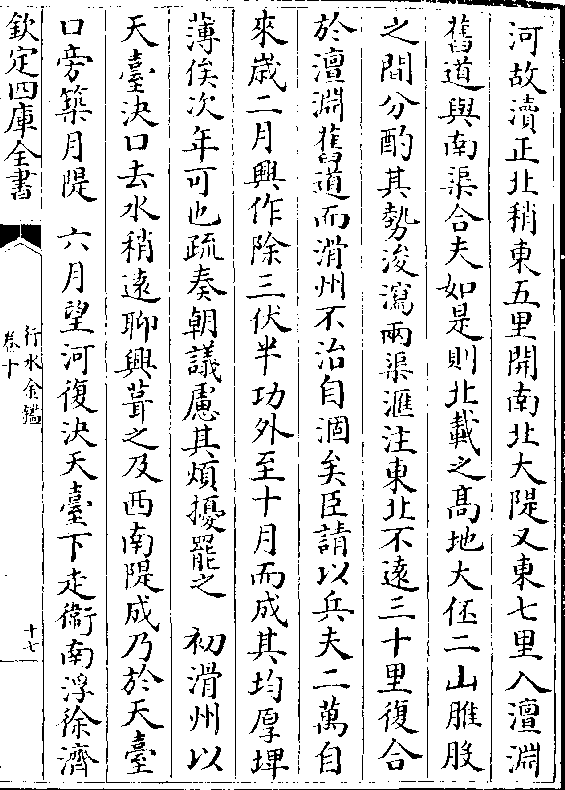 河故瀆正北稍東五里開南北大隄又東七里入澶淵
舊道與南渠合夫如是則北載之髙地大伾二山脽股
之間分酌其勢浚瀉兩渠滙注東北不遠三十里復合
於澶淵舊道而滑州不治自涸矣臣請以兵夫二萬自
來歲二月興作除三伏半功外至十月而成其均厚埤
薄俟次年可也疏奏朝議慮其煩擾罷之　初滑州以
天臺決口去水稍遠聊興葺之及西南隄成乃於天臺
口旁築月隄　六月望河復決天臺下走衞南浮徐濟
欽定四庫全書
行水金鑑
卷十
十七